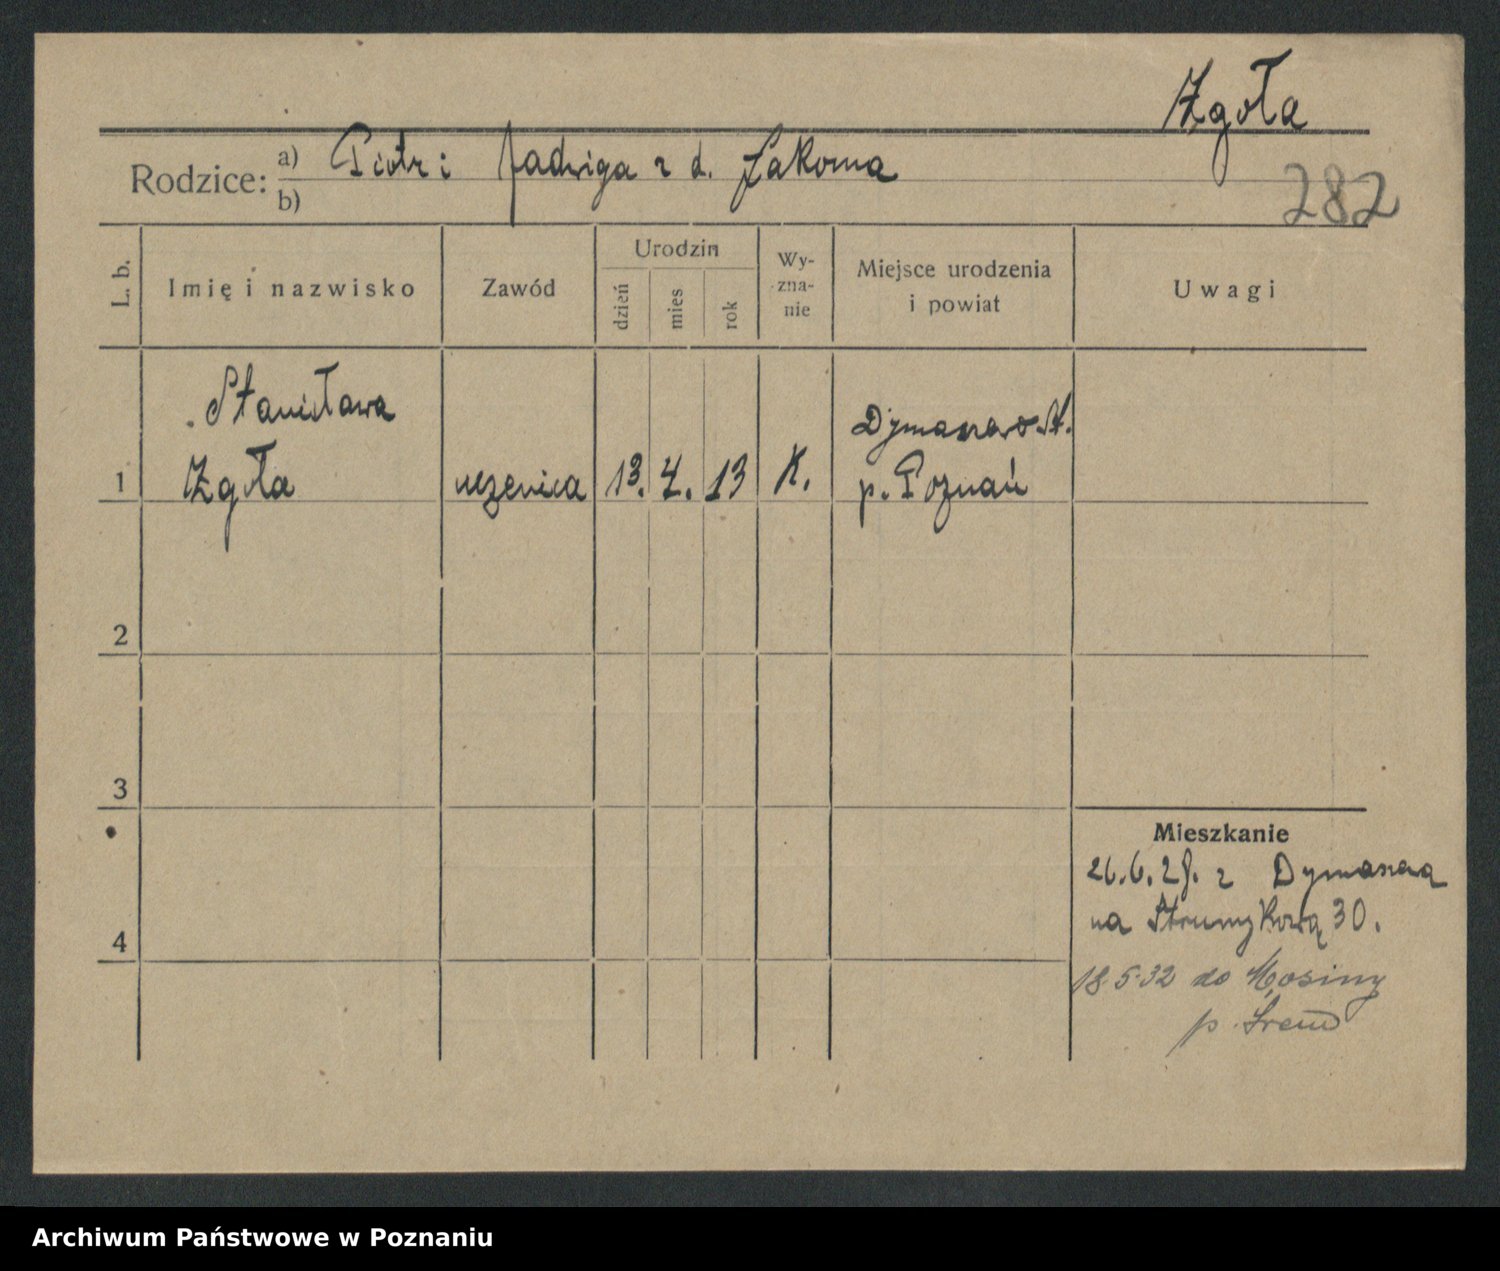 Zgoła
Rodzice: a) Piotr i Jadwiga z d. Łakoma
b)
282
L. b.
Imię i nazwisko
Zawód
Urodzin
dzień
mies
rok
Wy-
zna-
nie
Miejsce urodzenia
i powiat
Uwagi
Stanisława
Zgoła
1
uczenica
13. 4. 13
K.
Dymaczewo St.
p. Poznań
2
3
4
Mieszkanie
26.6.28. z Dymaczewa
na Strumykową 30.
18 5.32 do Mosiny
p. Śrem
Archiwum Państwowe w Poznaniu